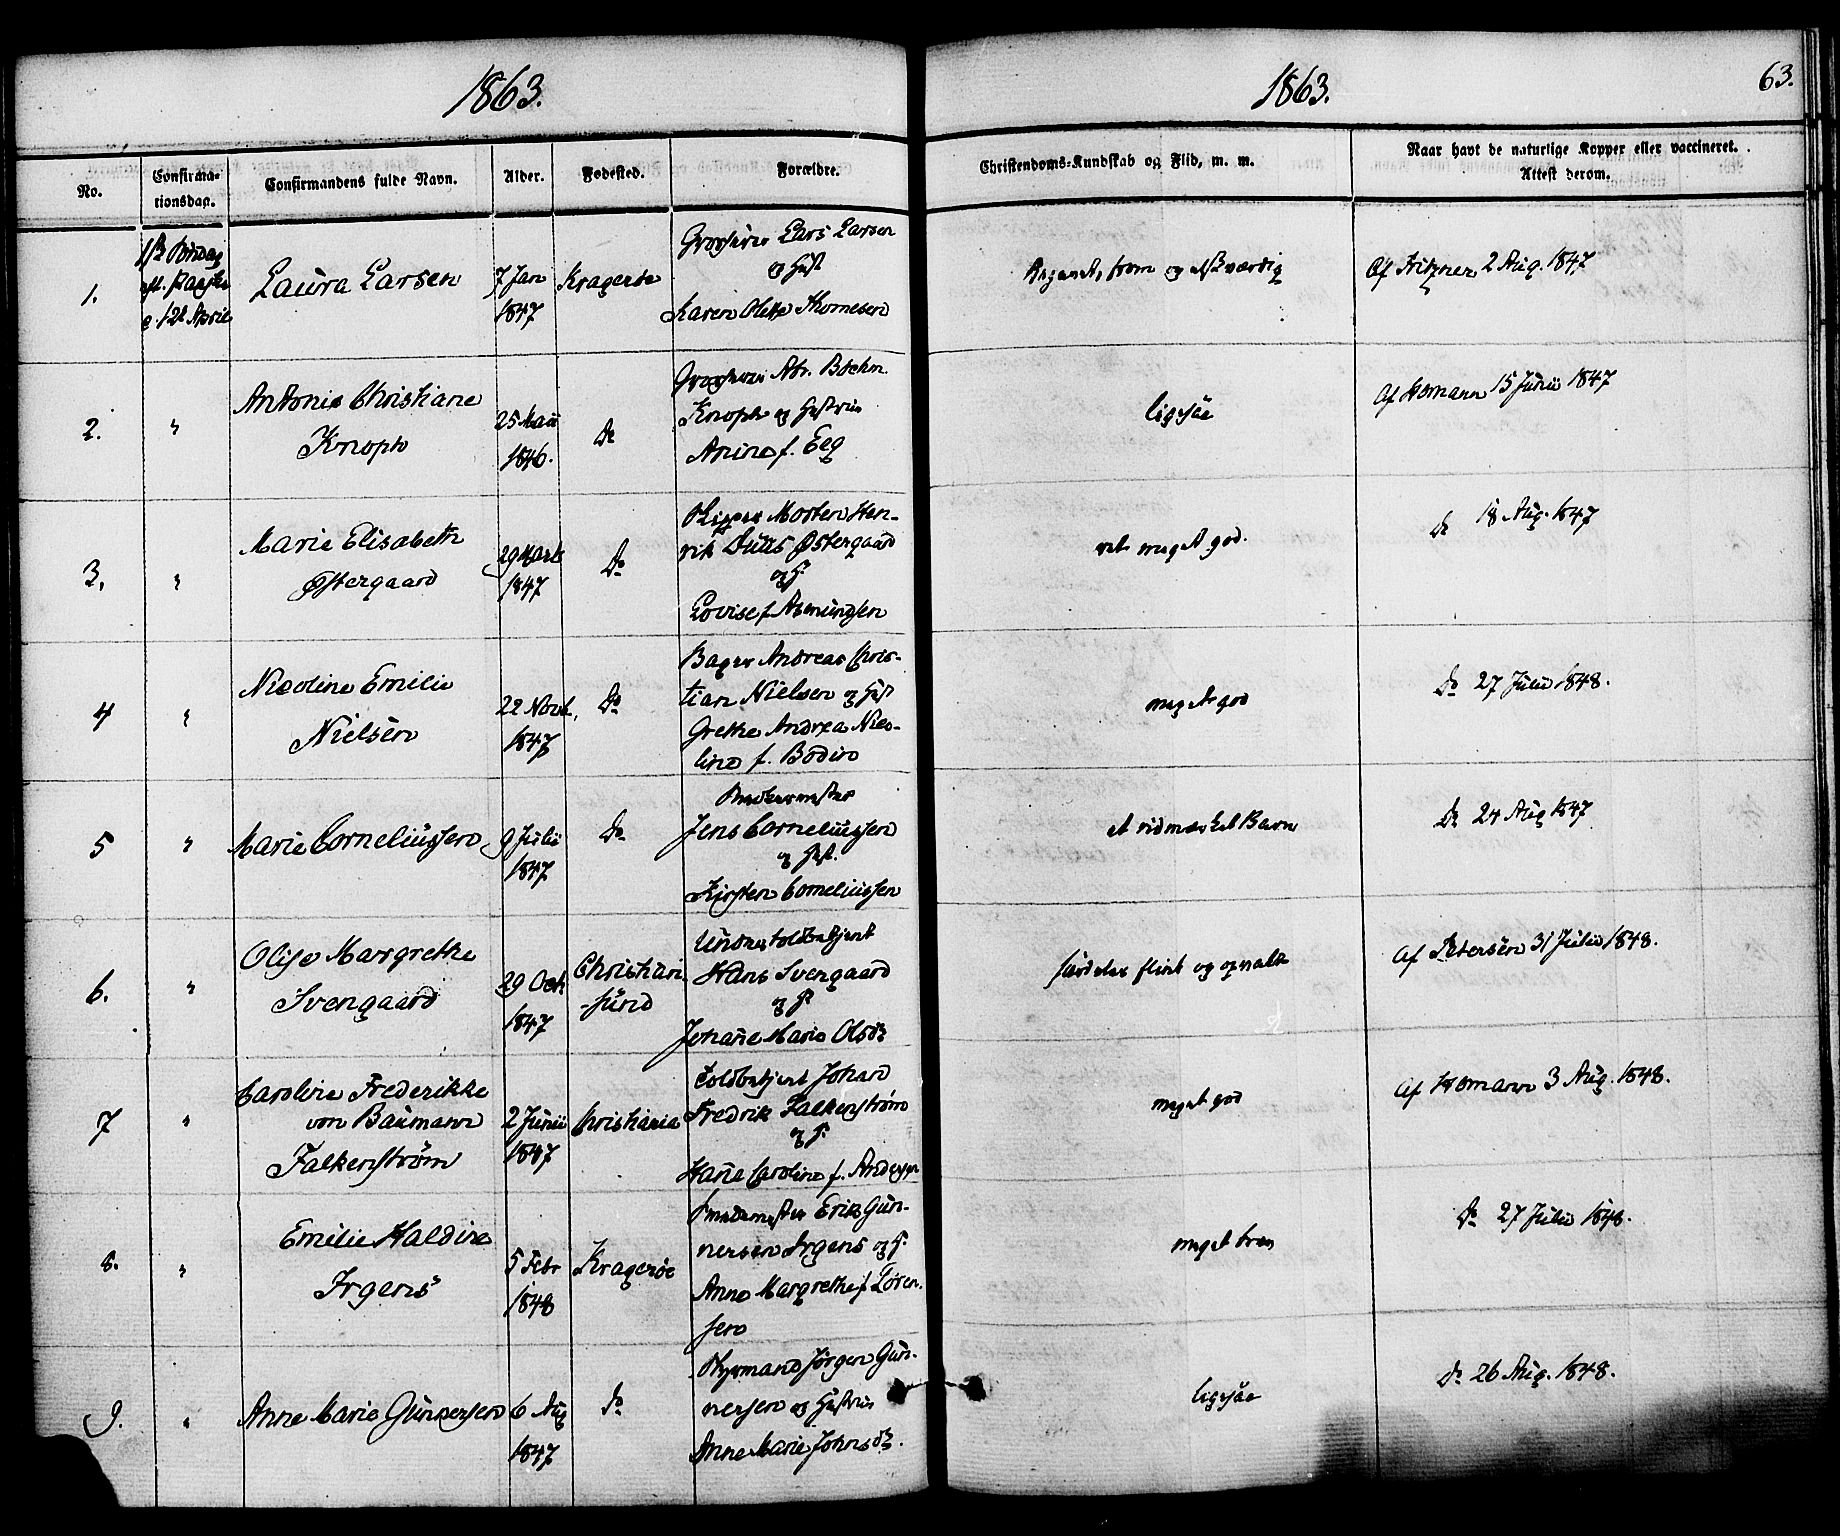 1863.
1863.
63.
No.
Confirma-
tionsdag.
Confirmandens fulde Navn.
Alder.
Fødested.
Forældre.
Christendoms-Kundskab og Flid, m. m.
Naar havt de naturlige Kopper eller vaccineret.
Attest derom.
1.
1ste Søndag
eft. Paaske
d. 12 April
Laura Larsen
7 Jan
1847
Kragerøe
Lars Larsen
og Hust
Karen Olette Thomesen
from og elskværdig
Af Fritzner 2 Aug. 1847
2.
"
Antonie Christiane
Knoph
25 Maii
1846.
Do
Abr. Boehm
Knoph og Hustrue
Anine f. Eeg
ligesaa
Af Homann 15 Junii 1847
3.
"
Marie Elisabeth
Østergaard
29 Marts
1847
Do
Skipper Morten Hen-
rik Duus Østergaard
og H.
Lovise f. Asmundsen
ret meget god.
Do 18 Aug. 1847
4
"
Nicoline Emilie
Nielsen
22 Novb.
1847
Do
Bager Andreas Chris-
tian Nielsen og Hust
Grethe Andrea Nico-
line f. Bodin
meget god
Do 27 Julii 1848.
5
"
Marie Corneliussen
9 Julii
1847
Do
Jens Corneliussen
og Hust.
Kirsten Corneliussen
et udmærket Barn
Do 24 Aug 1847
6.
"
Olise Margrethe
Svengaard
29 Oct
1847
Christian
-sund
Undertoldbetjent
Hans Svengaard
og H.
Johane Marie Olsdr
særdeles flink og opvakt
Af Petersen 31 Julii 1848.
7
"
Caroline Frederikke
von Baumann
Falkenstrøm
2 Junii
1847
Christiania
Toldbetjent Johan
Fredrik Falkenstrøm
og H.
Hane Caroline f. Andersen
meget god
Af Homann 3 Aug. 1848.
8.
"
Emilie Haldine
Irgens
5 Febr
1848
Kragerøe
Smedemester Erik Gun-
nersen Irgens og H.
Anne Margrethe f. Søren-
sen
meget
Do 27 Julii 1848.
9.
"
Anne Marie Gunnersen
6 Aug
1847
Do
Styrmand Jørgen Gun-
nersen og Hustrue
Anne Marie Johnsdr.
ligesaa
Do 26 Aug. 1848.